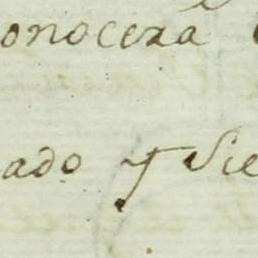 onocera
ado y sie